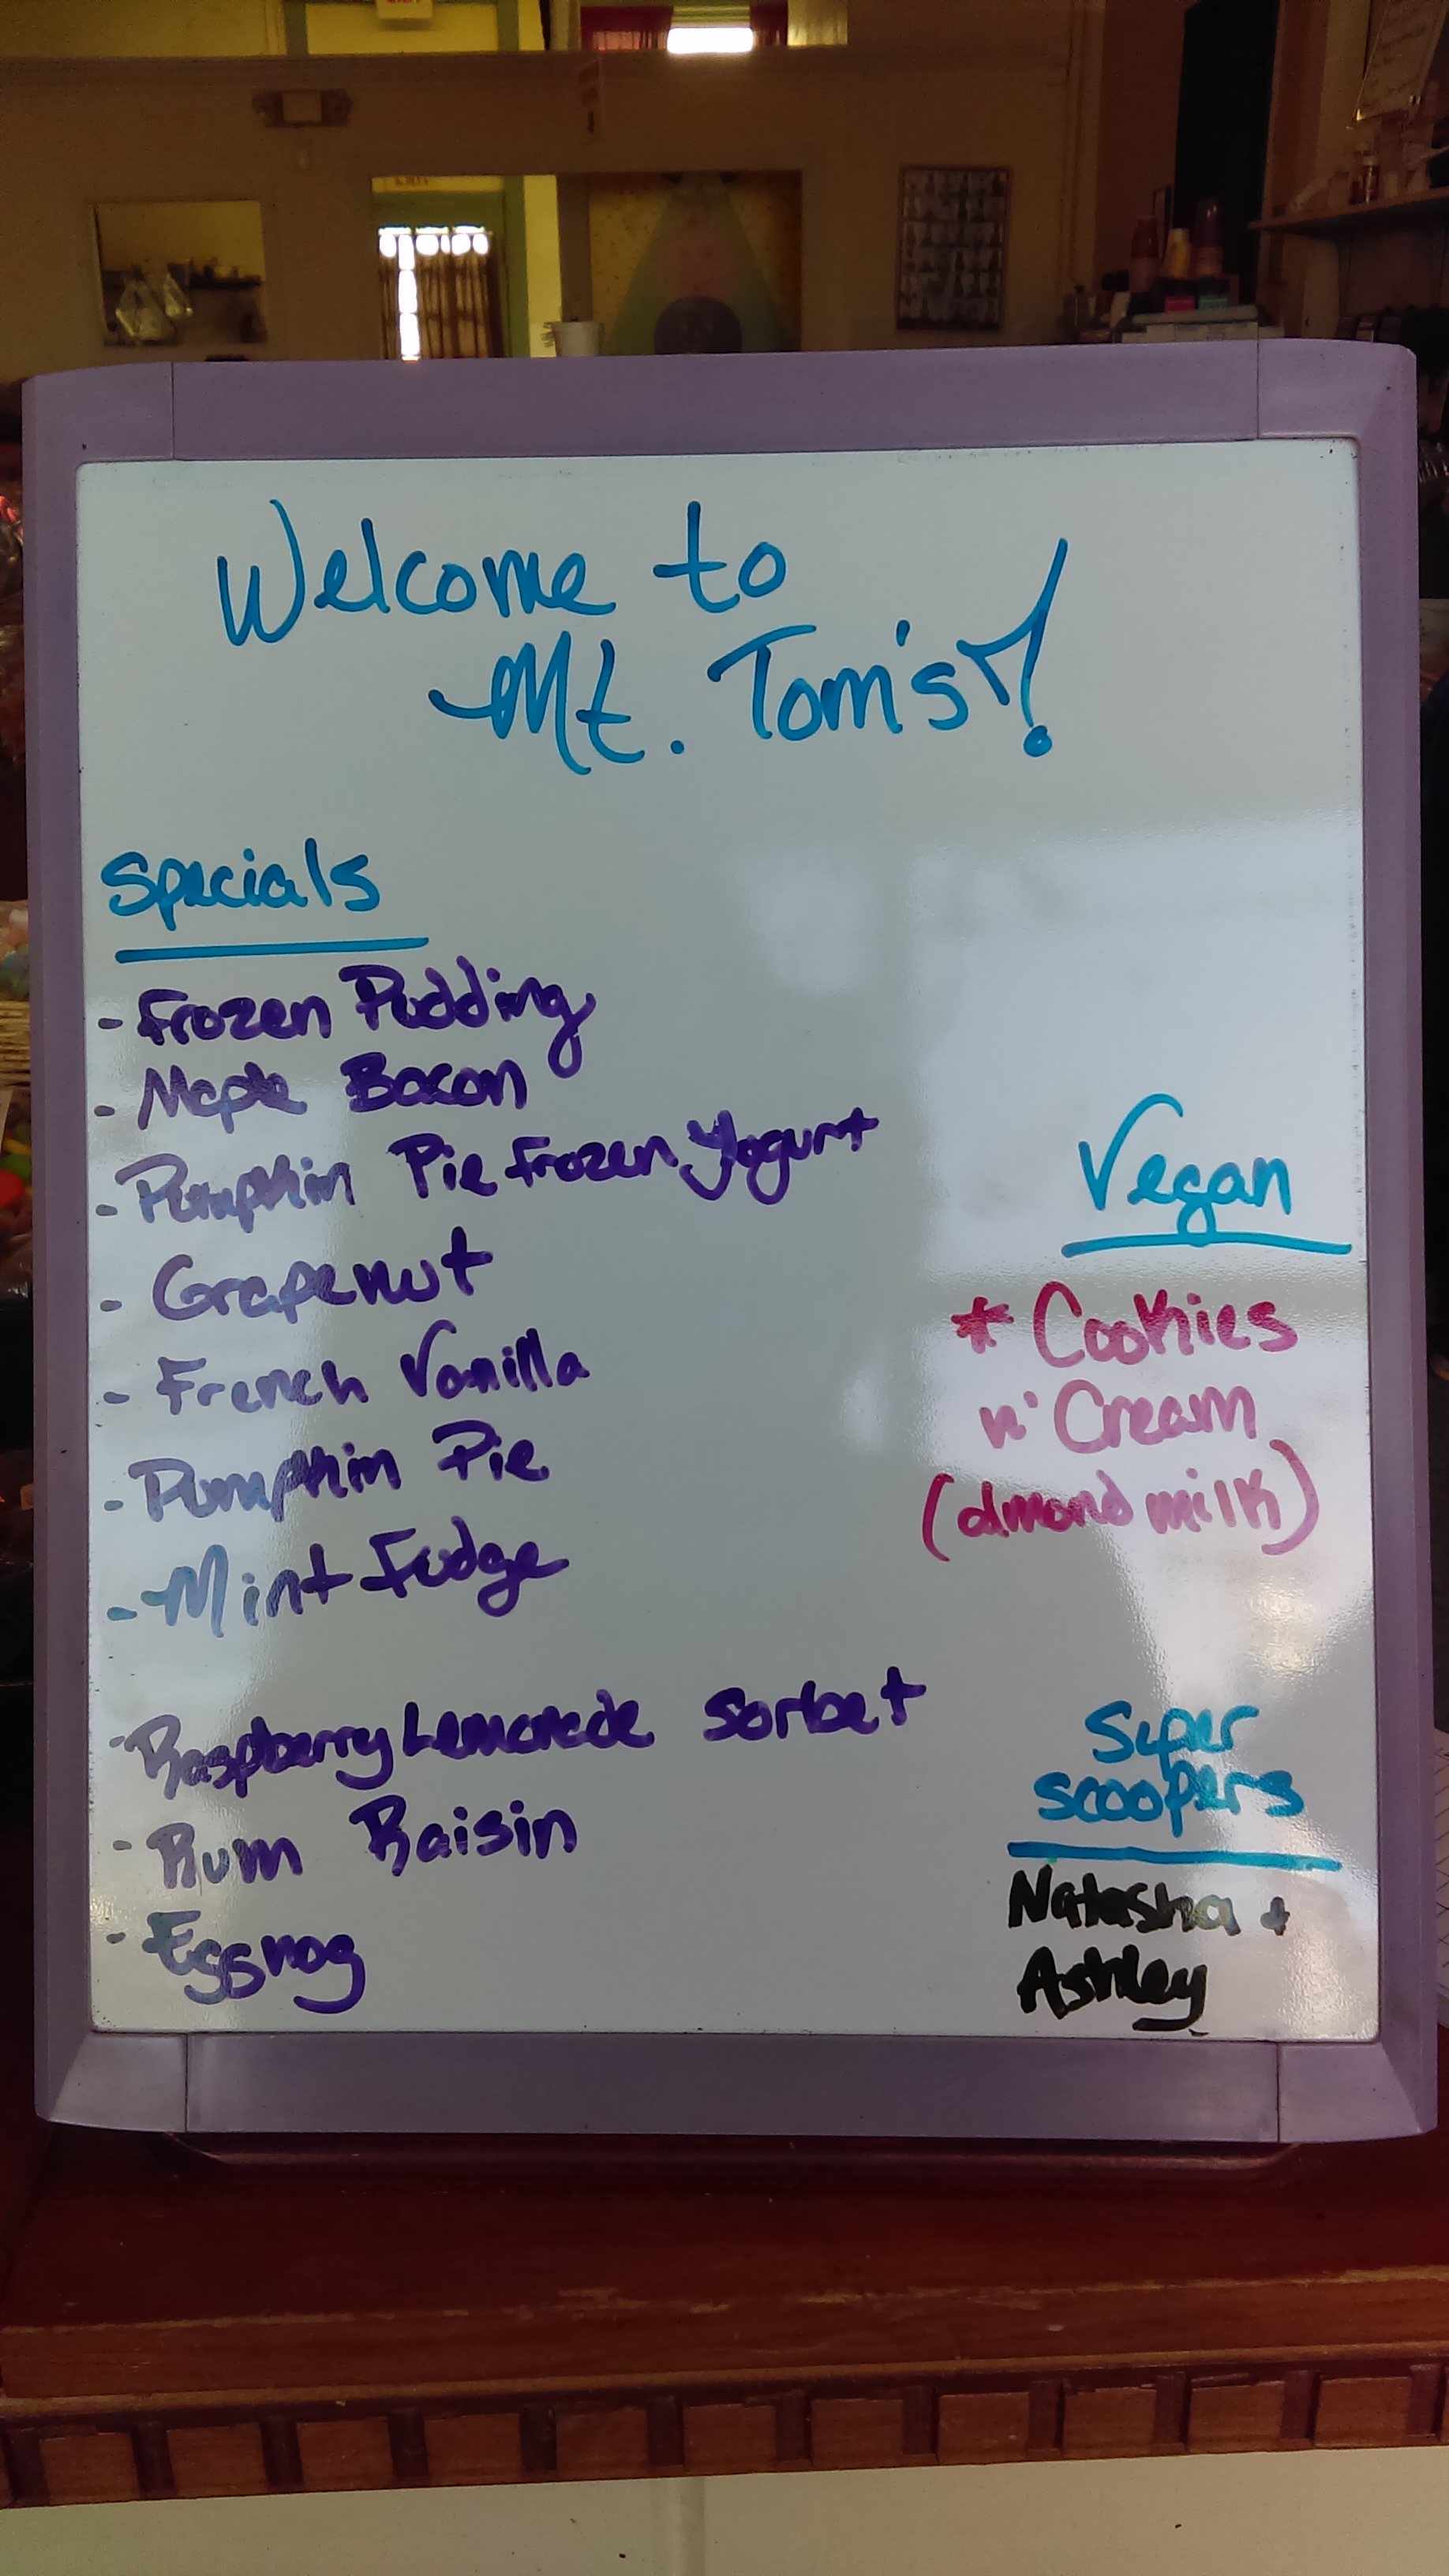 Welcome to
Mt. Tom's!
Specials
- Frozen Pudding
- Maple Bacon
- Pumpkin Pie Frozen Yogurt
- Grapenut
- French Vanilla
- Pumpkin Pie
- Mint Fudge
- Raspberry Lemonade Sorbet
- Rum Raisin
- Eggnog
Vegan
* Cookies
n' Cream
(almond milk)
Super
scoopers
Natasha +
Ashley